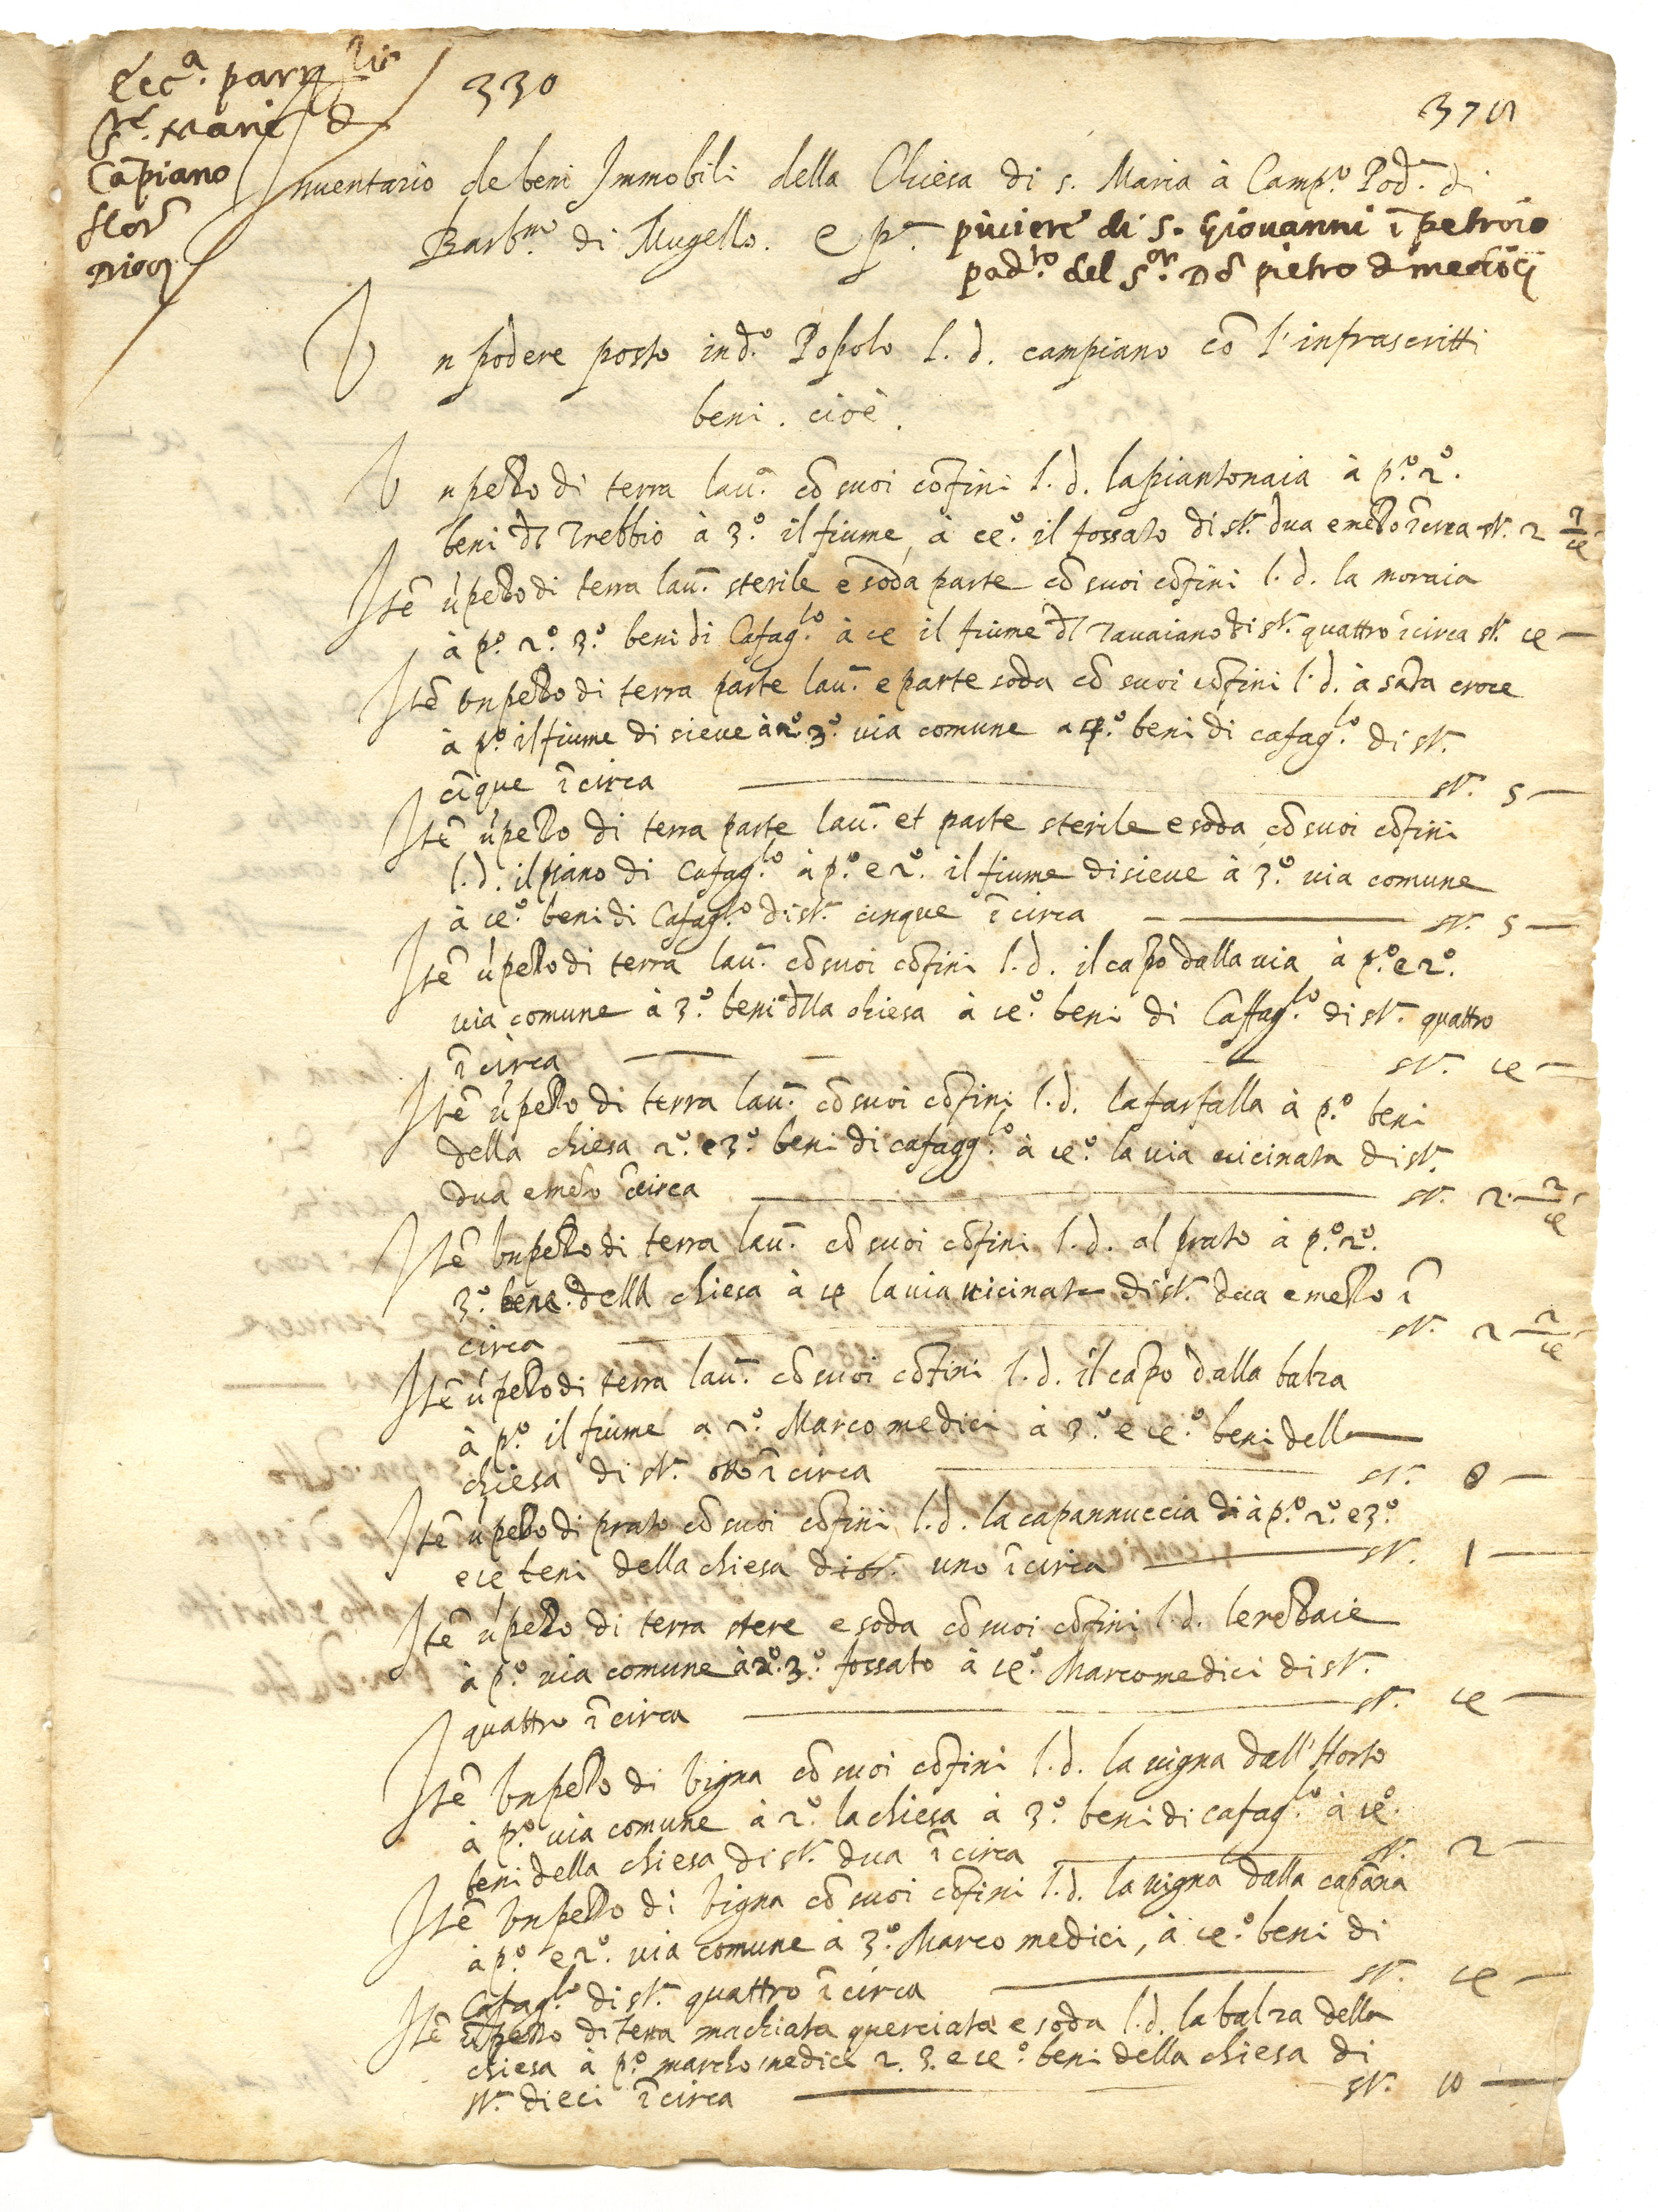 Ecc.a parrlis
S.te Marie d
Cāpiano
flor
Dioc.
330
375
Inuentario de beni Immobili della Chiesa di s. Maria à Camp.o Pod. di
Barb.no di Mugello. e p. piuiere di S. Giouanni ī petroio
pod.ro del S.or Dō pietro d medici
Vn podere posto in d.o Popolo l. d. campiano cō l'infrascritti
beni. cioè.
Vn pezzo di terra lau. cō suoi cōfini l. d. la piantonaia à p.o 2.o
beni dl Trebbio à 3.o il fiume, à 4.o il fossato di st. dua e mezzo ī circa st. 2 2/4
Itē ū pezzo di terra lau. sterile e soda parte cō suoi cōfini l. d. la moraia
à p.o 2.o 3.o beni di Cafag.lo à 4 il fiume dl Tauaiano di st. quattro ī circa st. 4 —
Itē vn pezzo di terra parte lau. e parte soda cō suoi cōfini l. d. à sāta croce
à p.o il fiume di sieue à 2.o 3.o via comune a 4.o beni di cafag.lo di st.
cīque ī circa — st. 5 —
Itē ū pezzo di terra parte lau. et parte sterile e soda cō suoi cōfini
l. d. il piano di Cafag.lo à p.o e 2.o il fiume di sieue à 3.o via comune
à 4.o beni di Cafag.lo di st. cinque ī circa — st. 5 —
Itē ū pezzo di terra lau. cō suoi cōfini l. d. il capo dalla via à p.o e 2.o
via comune à 3.o beni dlla chiesa à 4.o beni di Caffag.lo di st. quattro
ī circa — st. 4 —
Itē ū pezzo di terra lau. cō suoi cōfini l. d. la farfalla à p.o beni
della chiesa 2.o e 3.o beni di cafagg.lo à 4.o la via uicinata di st.
dua e mezo ī circa — st. 2 2/4
Itē vn pezzo di terra lau. cō suoi cōfini l. d. al prato à p.o 2.o
3.o bene della chiesa à 4 la via uicinata di st. dua e mezzo ī
circa — st. 2 2/4
Itē ū pezzo di terra lau. cō suoi cōfini l. d. il capo dalla balza
à p.o il fiume a 2.o Marco medici à 3.o e 4.o beni della
chiesa di st. otto ī circa — st. 8 —
Itē ū pezzo di prato cō suoi cōfini l. d. la capannuccia di à p.o 2.o e 3.o
e 4 beni della chiesa di st. uno ī circa — st. 1 —
Itē ū pezzo di terra stere e soda cō suoi cōfini l. d.
à p.o via comune à 2.o 3.o fossato à 4.o Marco medici di st.
quattro ī circa — st. 4 —
Itē vn pezzo di vigna cō suoi cōfini l. d. la vigna dall' Horto
à p.o via comune à 2.o la chiesa à 3.o beni di cafag.lo à 4.o
beni della chiesa di st. dua ī circa — st. 2 —
Itē vn pezzo di vigna cō suoi cōfini l. d. la vigna dalla capāna
à p.o e 2.o via comune à 3.o Marco medici, à 4.o beni di
Cafag.lo di st. quattro ī circa — st. 4 —
Itē ū pezzo di terra machiata querciata e soda l. d. la balza della
chiesa à p.o marcho medici 2. 3. e 4.o beni della chiesa di
st. dieci ī circa — st. 10 —